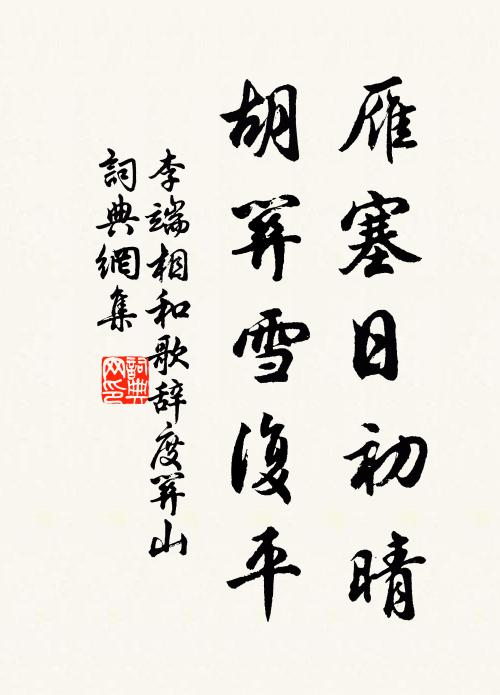 雁塞日初晴
胡關雪復平
李端相和歌辞度關山
詞典網集
詞典网印